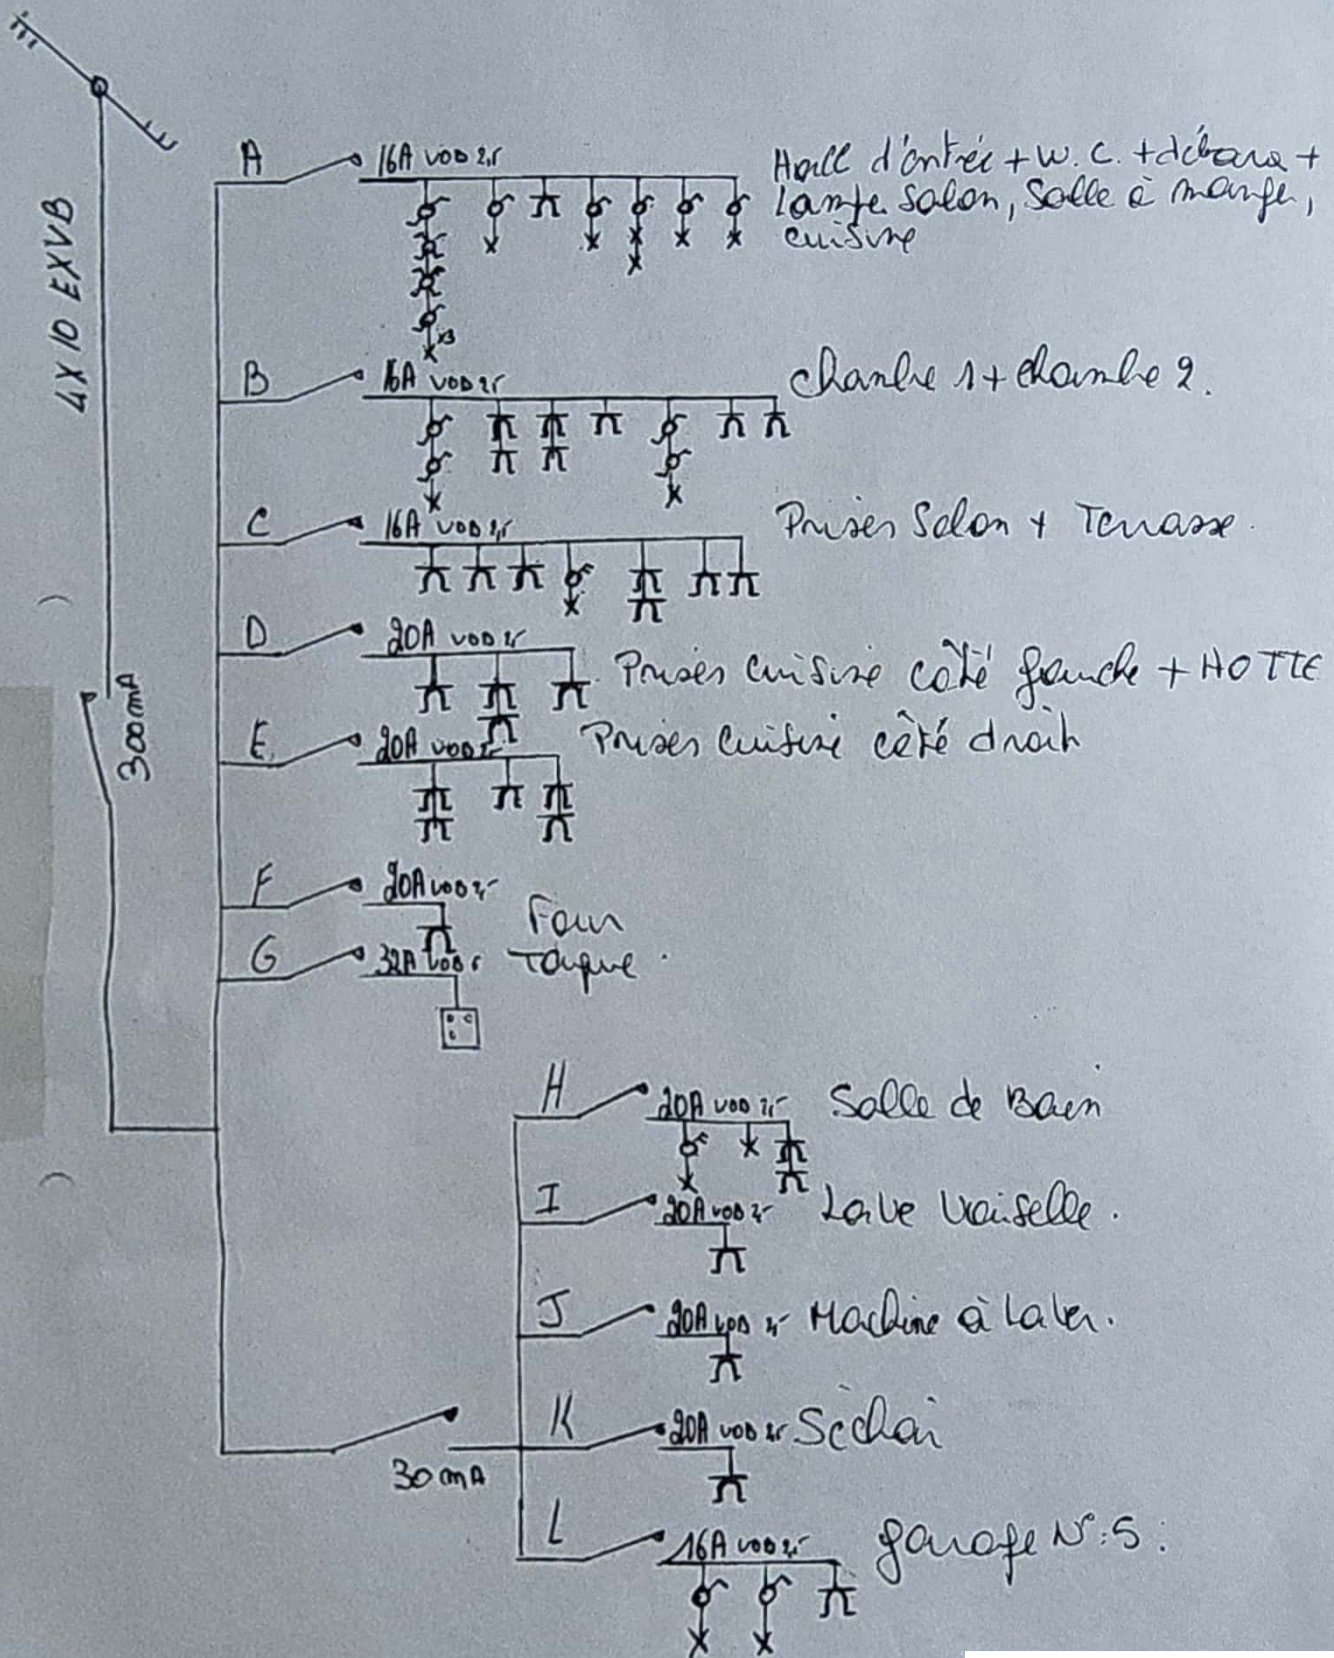 4X10 EXVB
300mA
A 16A VOB 2,5 Hall d'entrée + W.C. + débara +
Lampe Salon, Salle à mange,
cuisine
x3
B 16A VOB 2,5 chambre 1 + chambre 2.
C 16A VOB 2,5 Prises Salon + Terrasse.
D 20A VOB 2,5
Prises Cuisine côté gauche + HOTTE
E. 20A VOB 2,5 Prises Cuisine côté droit
F 20A VOB 2,5 Four
G 32A VOB 6 Taque.
H 20A VOB 2,5 Salle de Bain
I 20A VOB 2,5 Lave Vaiselle.
J 20A VOB 2,5 Machine à laver.
K 20A VOB 2,5 Séchoi
30mA
L 16A VOB 2,5 garage N°:5.